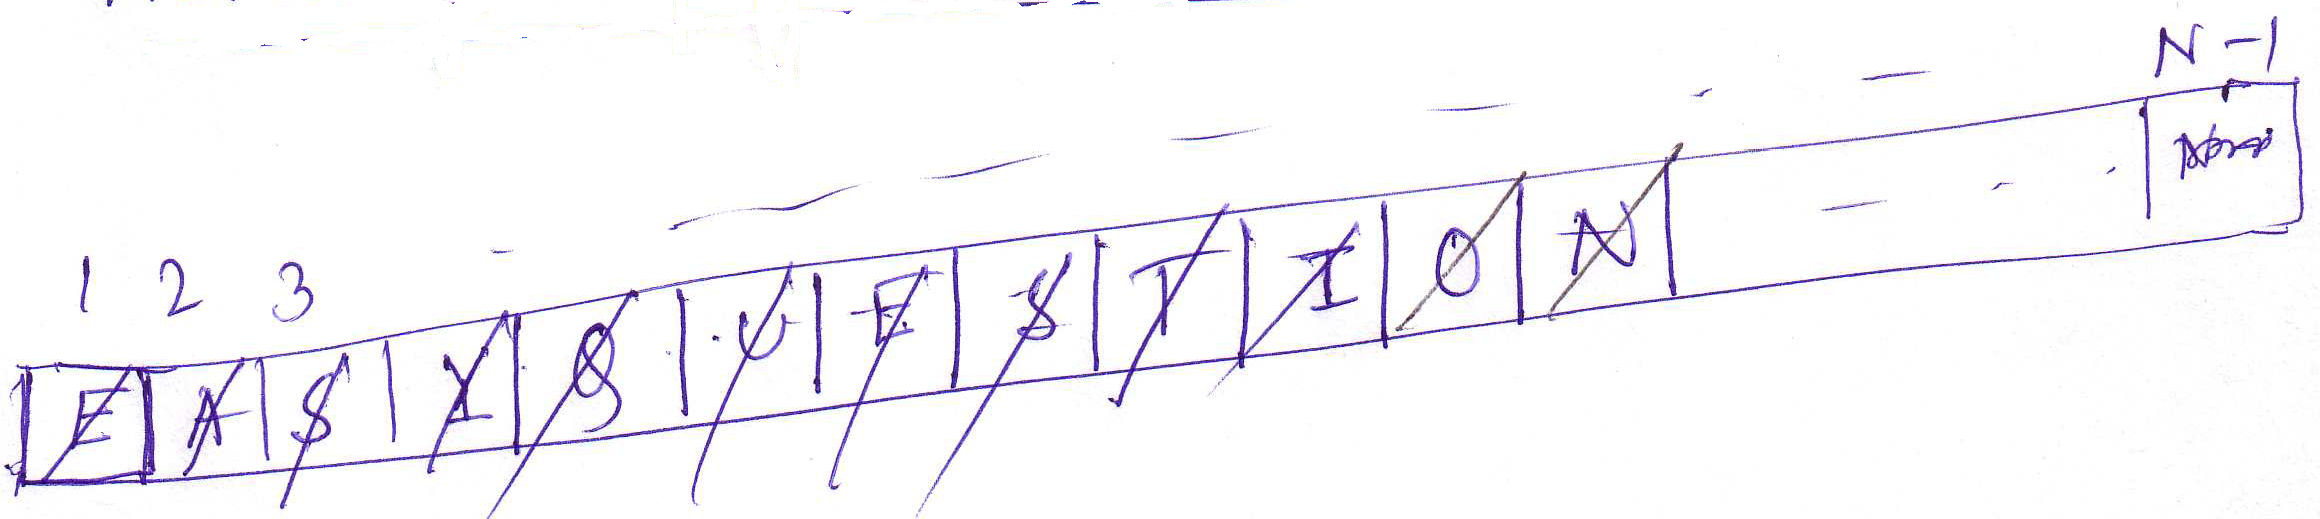 1 2 3 - - - - - - - N-1
E A S Y Q U E S T I O N - - -